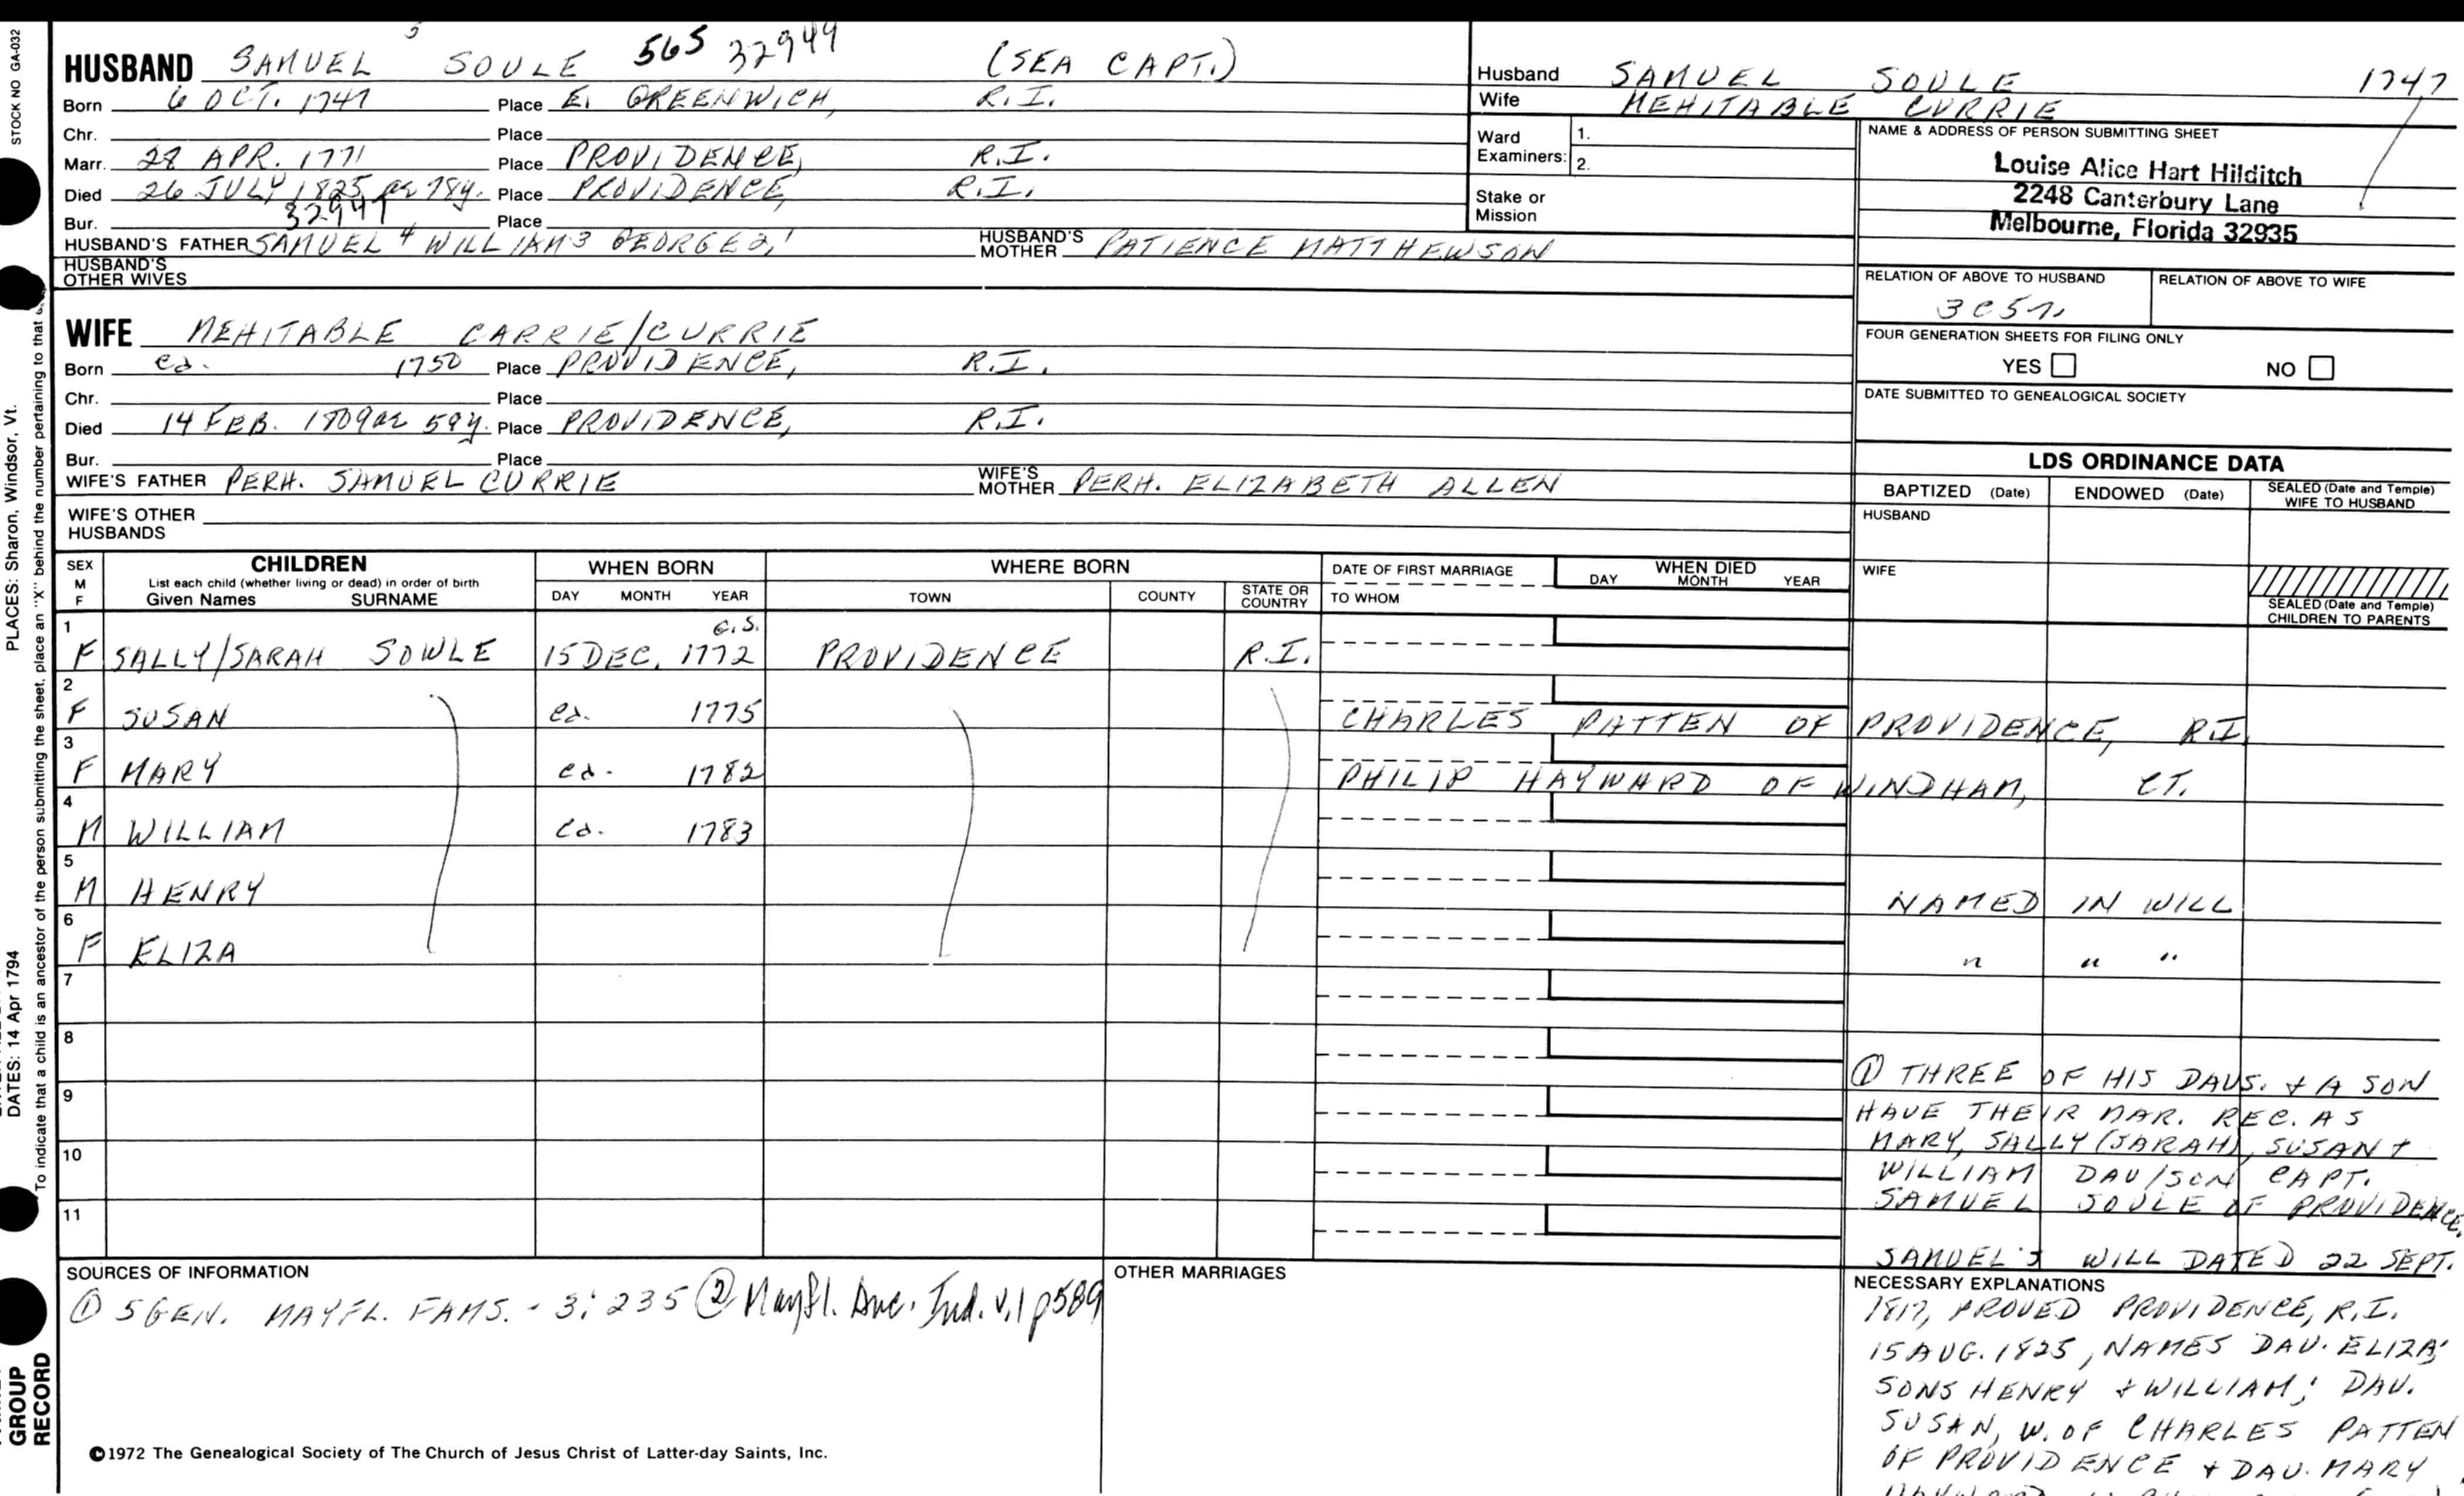 HUSBAND SAMUEL 5 SOULE 565 32949 (SEA CAPT.)
Born 6 OCT. 1747 Place E. GREENWICH, R.I.
Chr. Place
Marr. 28 APR. 1771 Place PROVIDENCE, R.I.
Died 26 JULY 1825 ae 78y. Place PROVIDENCE, R.I.
Bur. 32949 Place
HUSBAND'S FATHER SAMUEL 4 WILLIAM 3 GEORGE 2, 1 HUSBAND'S MOTHER PATIENCE MATTHEWSON
HUSBAND'S OTHER WIVES
WIFE MEHITABLE CARRIE/CURRIE
Born ca. 1750 Place PROVIDENCE, R.I.
Chr. Place
Died 14 FEB. 1809 ae 59y. Place PROVIDENCE, R.I.
Bur. Place
WIFE'S FATHER PERH. SAMUEL CURRIE WIFE'S MOTHER PERH. ELIZABETH ALLEN
WIFE'S OTHER HUSBANDS
Husband SAMUEL SOULE 1747
Wife MEHITABLE CURRIE
Ward Examiners: 1.
2.
Stake or Mission
NAME & ADDRESS OF PERSON SUBMITTING SHEET
Louise Alice Hart Hilditch
2248 Canterbury Lane
Melbourne, Florida 32935
RELATION OF ABOVE TO HUSBAND RELATION OF ABOVE TO WIFE
FOUR GENERATION SHEETS FOR FILING ONLY
YES NO
DATE SUBMITTED TO GENEALOGICAL SOCIETY
LDS ORDINANCE DATA
BAPTIZED (Date) ENDOWED (Date) SEALED (Date and Temple) WIFE TO HUSBAND
HUSBAND
WIFE
SEALED (Date and Temple) CHILDREN TO PARENTS
SEX M F CHILDREN WHEN BORN WHERE BORN DATE OF FIRST MARRIAGE WHEN DIED
List each child (whether living or dead) in order of birth
Given Names SURNAME DAY MONTH YEAR TOWN COUNTY STATE OR COUNTRY TO WHOM DAY MONTH YEAR
1 F SALLY/SARAH SOWLE 15 DEC. 1772 PROVIDENCE R.I.
2 F SUSAN ca. 1775 CHARLES PATTEN OF PROVIDENCE, R.I.
3 F MARY ca. 1782 PHILIP HAYWARD OF WINDHAM, CT.
4 M WILLIAM ca. 1783
5 M HENRY NAMED IN WILL
6 F ELIZA " " "
7
8
9
10
11
① THREE OF HIS DAUS. + A SON
HAVE THEIR MAR. REC. AS
MARY, SALLY (SARAH), SUSAN +
WILLIAM DAU/SON CAPT.
SAMUEL SOULE OF PROVIDENCE.
SAMUEL'S WILL DATED 22 SEPT.
NECESSARY EXPLANATIONS
1817, PROVED PROVIDENCE, R.I.
15 AUG. 1825, NAMES DAU. ELIZA;
SONS HENRY + WILLIAM; DAU.
SUSAN, W. OF CHARLES PATTEN
OF PROVIDENCE + DAU. MARY
SOURCES OF INFORMATION
① 5 GEN. MAYFL. FAMS. - 3: 235 ② Mayfl. Ind. v.1 p589
OTHER MARRIAGES
©1972 The Genealogical Society of The Church of Jesus Christ of Latter-day Saints, Inc.
STOCK NO GA-032
PLACES: Sharon, Windsor, Vt.
DATES: 14 Apr 1794
To indicate that a child is an ancestor of the person submitting the sheet, place an "X" behind the number pertaining to that
GROUP
RECORD